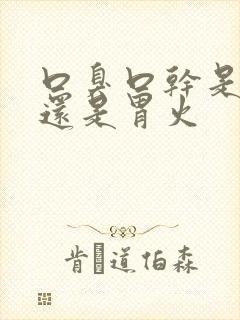 口臭口幹是
還是胃火
肯 道伯森